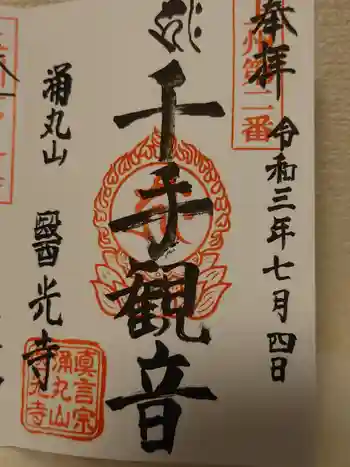 奉拝
令和三年七月四日
州第二番
千手観音
涌丸山
醫光寺
真言宗
涌丸山
醫光寺